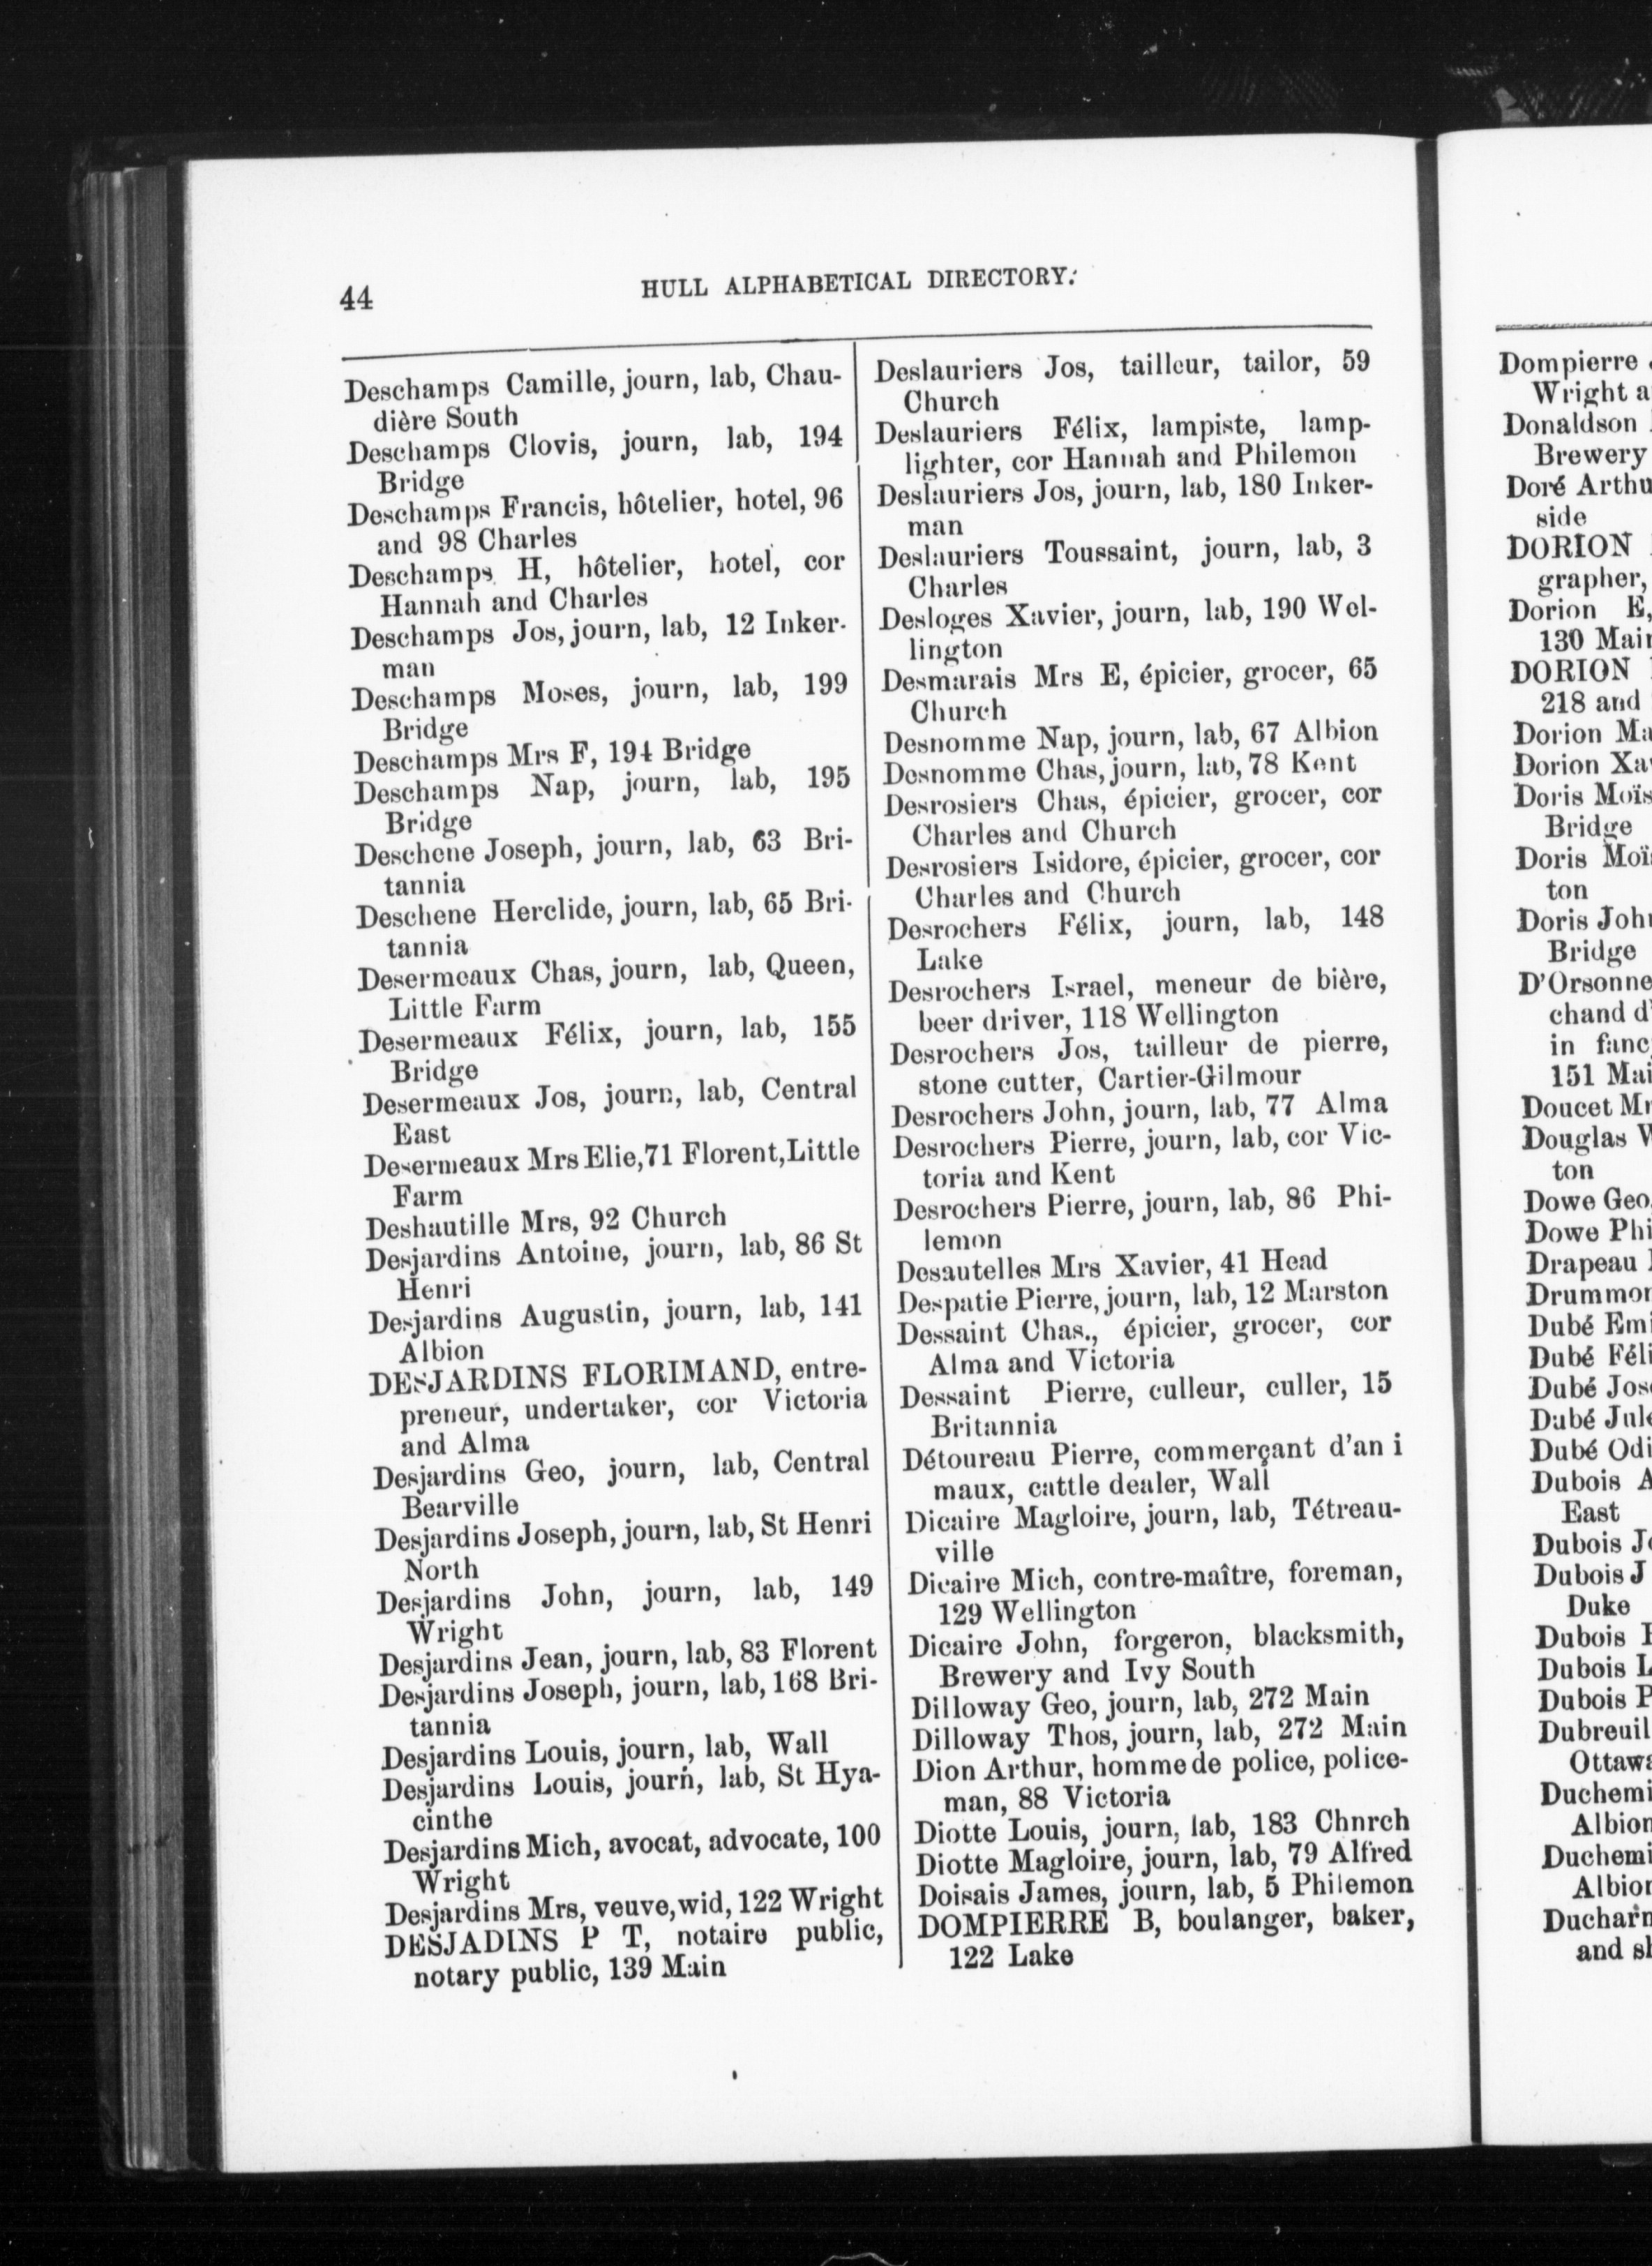 44
HULL ALPHABETICAL DIRECTORY.
Deschamps Camille, journ, lab, Chau-
dière South
Deschamps Clovis, journ, lab, 194
Bridge
Deschamps Francis, hôtelier, hotel, 96
and 98 Charles
Deschamps H, hôtelier, hotel, cor
Hannah and Charles
Deschamps Jos, journ, lab, 12 Inker-
man
Deschamps Moses, journ, lab, 199
Bridge
Deschamps Mrs F, 194 Bridge
Deschamps Nap, journ, lab, 195
Bridge
Deschene Joseph, journ, lab, 63 Bri-
tannia
Deschene Herclide, journ, lab, 65 Bri-
tannia
Desermeaux Chas, journ, lab, Queen,
Little Farm
Desermeaux Félix, journ, lab, 155
Bridge
Desermeaux Jos, journ, lab, Central
East
Desermeaux Mrs Elie, 71 Florent, Little
Farm
Deshautille Mrs, 92 Church
Desjardins Antoine, journ, lab, 86 St
Henri
Desjardins Augustin, journ, lab, 141
Albion
DESJARDINS FLORIMAND, entre-
preneur, undertaker, cor Victoria
and Alma
Desjardins Geo, journ, lab, Central
Bearville
Desjardins Joseph, journ, lab, St Henri
North
Desjardins John, journ, lab, 149
Wright
Desjardins Jean, journ, lab, 83 Florent
Desjardins Joseph, journ, lab, 168 Bri-
tannia
Desjardins Louis, journ, lab, Wall
Desjardins Louis, journ, lab, St Hya-
cinthe
Desjardins Mich, avocat, advocate, 100
Wright
Desjardins Mrs, veuve, wid, 122 Wright
DESJADINS P T, notaire public,
notary public, 139 Main
Deslauriers Jos, tailleur, tailor, 59
Church
Deslauriers Félix, lampiste, lamp-
lighter, cor Hannah and Philemon
Deslauriers Jos, journ, lab, 180 Inker-
man
Deslauriers Toussaint, journ, lab, 3
Charles
Desloges Xavier, journ, lab, 190 Wel-
lington
Desmarais Mrs E, épicier, grocer, 65
Church
Desnomme Nap, journ, lab, 67 Albion
Desnomme Chas, journ, lab, 78 Kent
Desrosiers Chas, épicier, grocer, cor
Charles and Church
Desrosiers Isidore, épicier, grocer, cor
Charles and Church
Desrochers Félix, journ, lab, 148
Lake
Desrochers Israel, meneur de bière,
beer driver, 118 Wellington
Desrochers Jos, tailleur de pierre,
stone cutter, Cartier-Gilmour
Desrochers John, journ, lab, 77 Alma
Desrochers Pierre, journ, lab, cor Vic-
toria and Kent
Desrochers Pierre, journ, lab, 86 Phi-
lemon
Desautelles Mrs Xavier, 41 Head
Despatie Pierre, journ, lab, 12 Marston
Dessaint Chas., épicier, grocer, cor
Alma and Victoria
Dessaint Pierre, culleur, culler, 15
Britannia
Détoureau Pierre, commerçant d'an i
maux, cattle dealer, Wall
Dicaire Magloire, journ, lab, Tétreau-
ville
Dicaire Mich, contre-maître, foreman,
129 Wellington
Dicaire John, forgeron, blacksmith,
Brewery and Ivy South
Dilloway Geo, journ, lab, 272 Main
Dilloway Thos, journ, lab, 272 Main
Dion Arthur, homme de police, police-
man, 88 Victoria
Diotte Louis, journ, lab, 183 Chnrch
Diotte Magloire, journ, lab, 79 Alfred
Doisais James, journ, lab, 5 Philemon
DOMPIERRE B, boulanger, baker,
122 Lake
Dompierre
Wright
Donaldson
Brewery
Doré
side
DORION
grapher,
Dorion E,
130
DORION
218 and
Dorion
Dorion
Doris
Bridge
Doris
ton
Doris
Bridge
chand
in
151
Doucet
Douglas
ton
Dowe Geo
Dowe
Drapeau
Dubé
Dubé
Dubé
Dubé
Dubé
Dubois
East
Dubois
Dubois
Duke
Dubois
Dubois
Dubois
Dubreuil
and